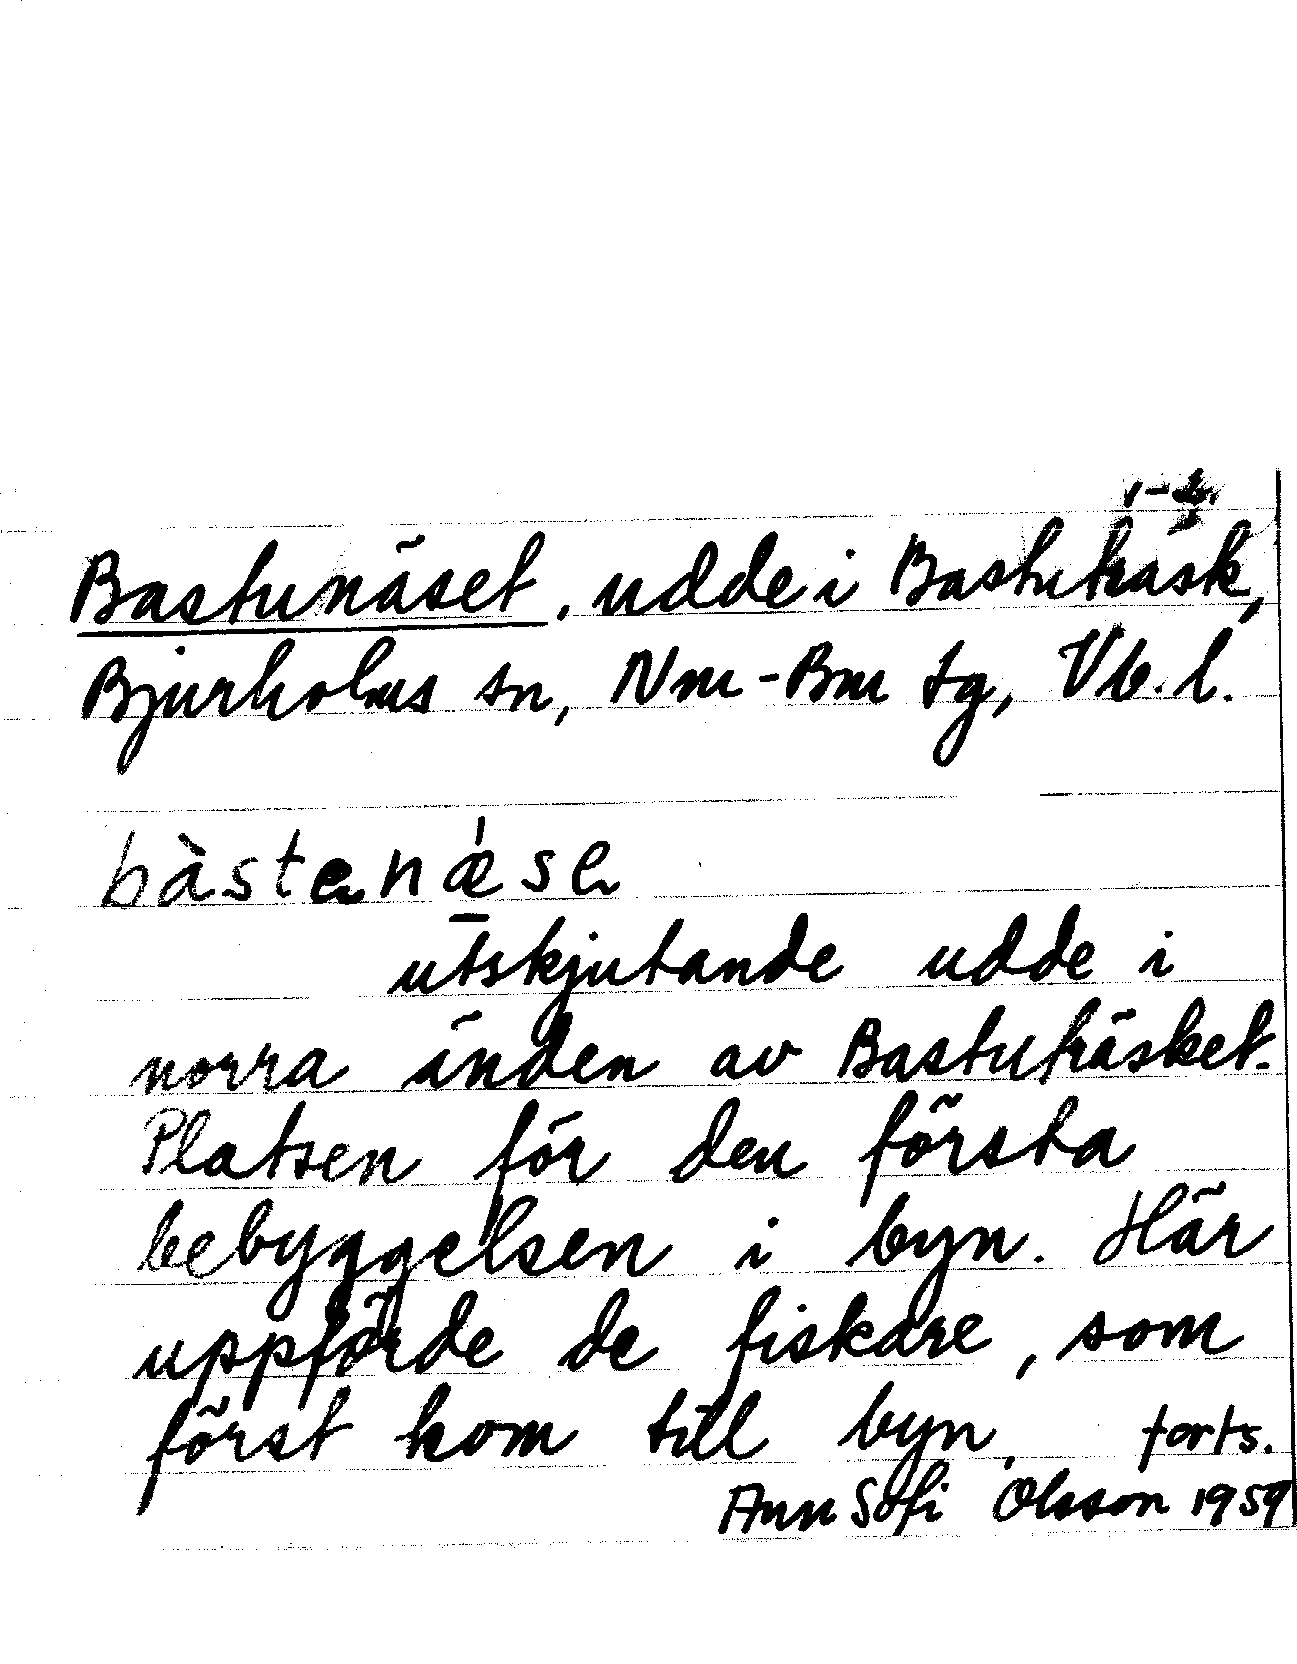 Bastunäset, udde i Bastuträsk,
Bjurholms sn, Nm-Bm tg, Vb. l.
bàstenǽse
utskjutande udde i
norra änden av Bastuträsket.
Platsen för den första
bebyggelsen i byn. Här
uppförde de fiskare, som
först kom till byn, forts.
Ann Sofi Olsson 1959